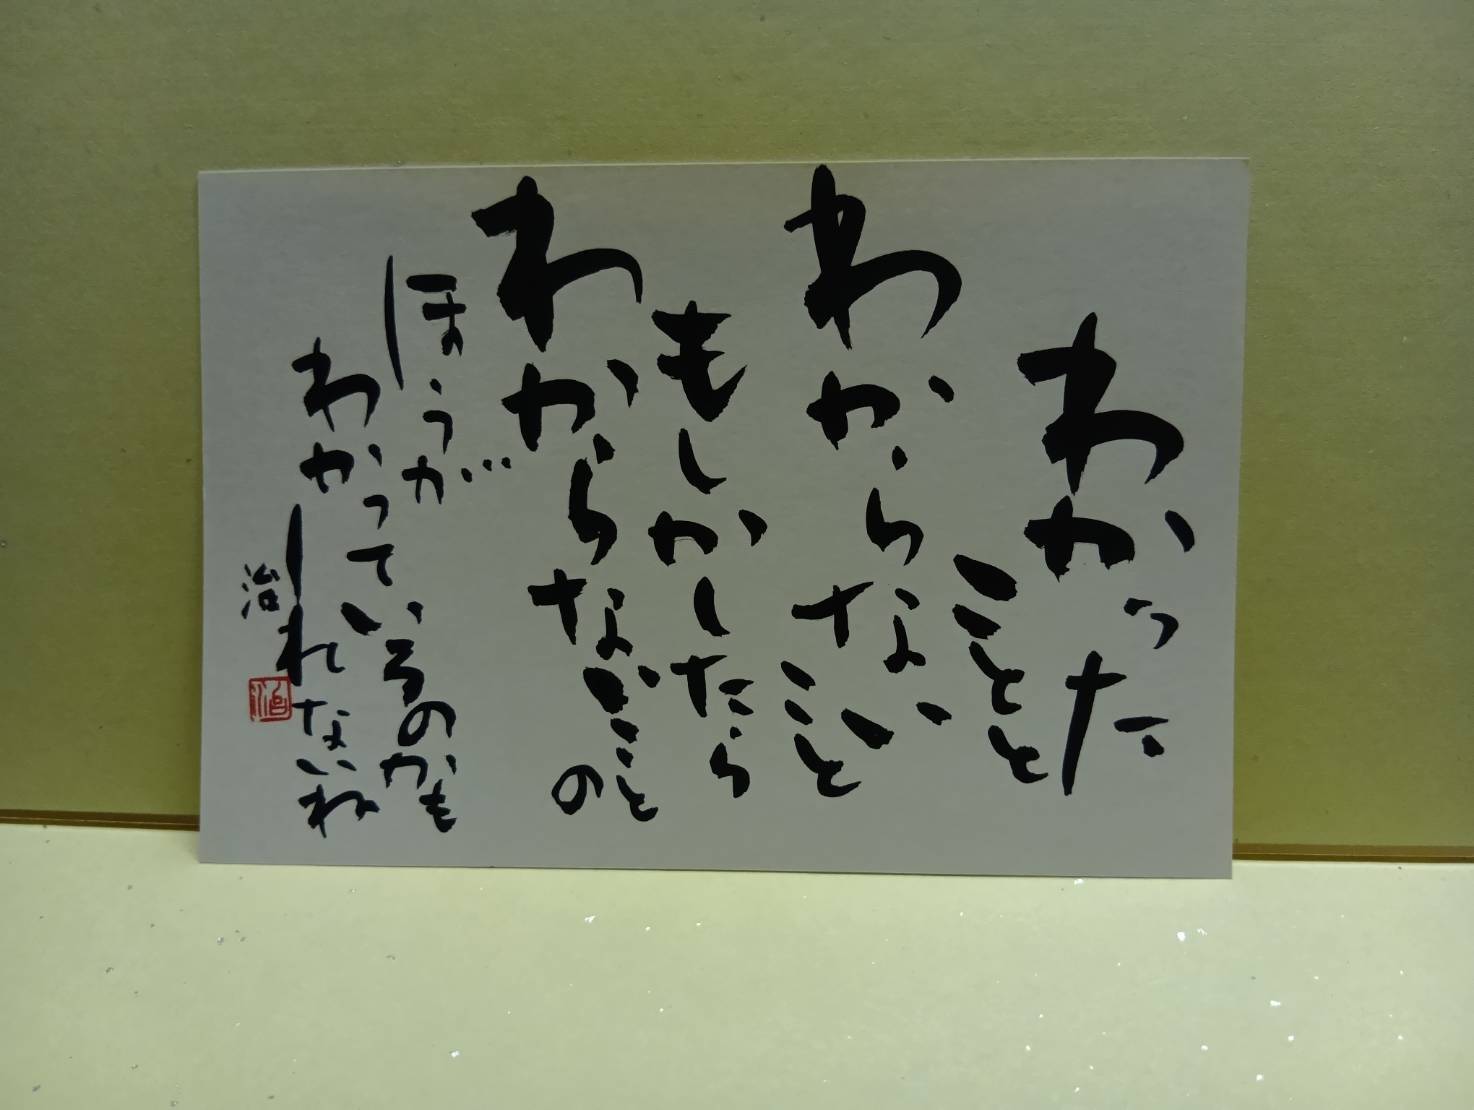 わかった
ことと
わからない
こと
もしかしたら
わからないこと
の
ほうが
わかっているのかも
しれないね
治